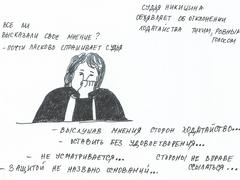 ВСЕ ВЫ
ВЫСКАЗАЛИ СВОЕ МНЕНИЕ?
- ПОЧТИ ЛАСКОВО СПРАШИВАЕТ СУДЬЯ
СУДЬЯ НИКИШИНА
ОБЪЯВЛЯЕТ ОБ ОТКЛОНЕНИИ
ХОДАТАЙСТВА ТИХИМ, РОВНЫМ
ГОЛОСОМ
- ВЫСЛУШАВ МНЕНИЯ СТОРОН ХОДАТАЙСТВО...
- ОСТАВИТЬ БЕЗ УДОВЛЕТВОРЕНИЯ...
- НЕ УСМАТРИВАЕТСЯ...
СТОРОНЫ НЕ ВПРАВЕ
ССЫЛАТЬСЯ...
- ЗАЩИТОЙ НЕ НАЗВАНО ОСНОВАНИЙ...